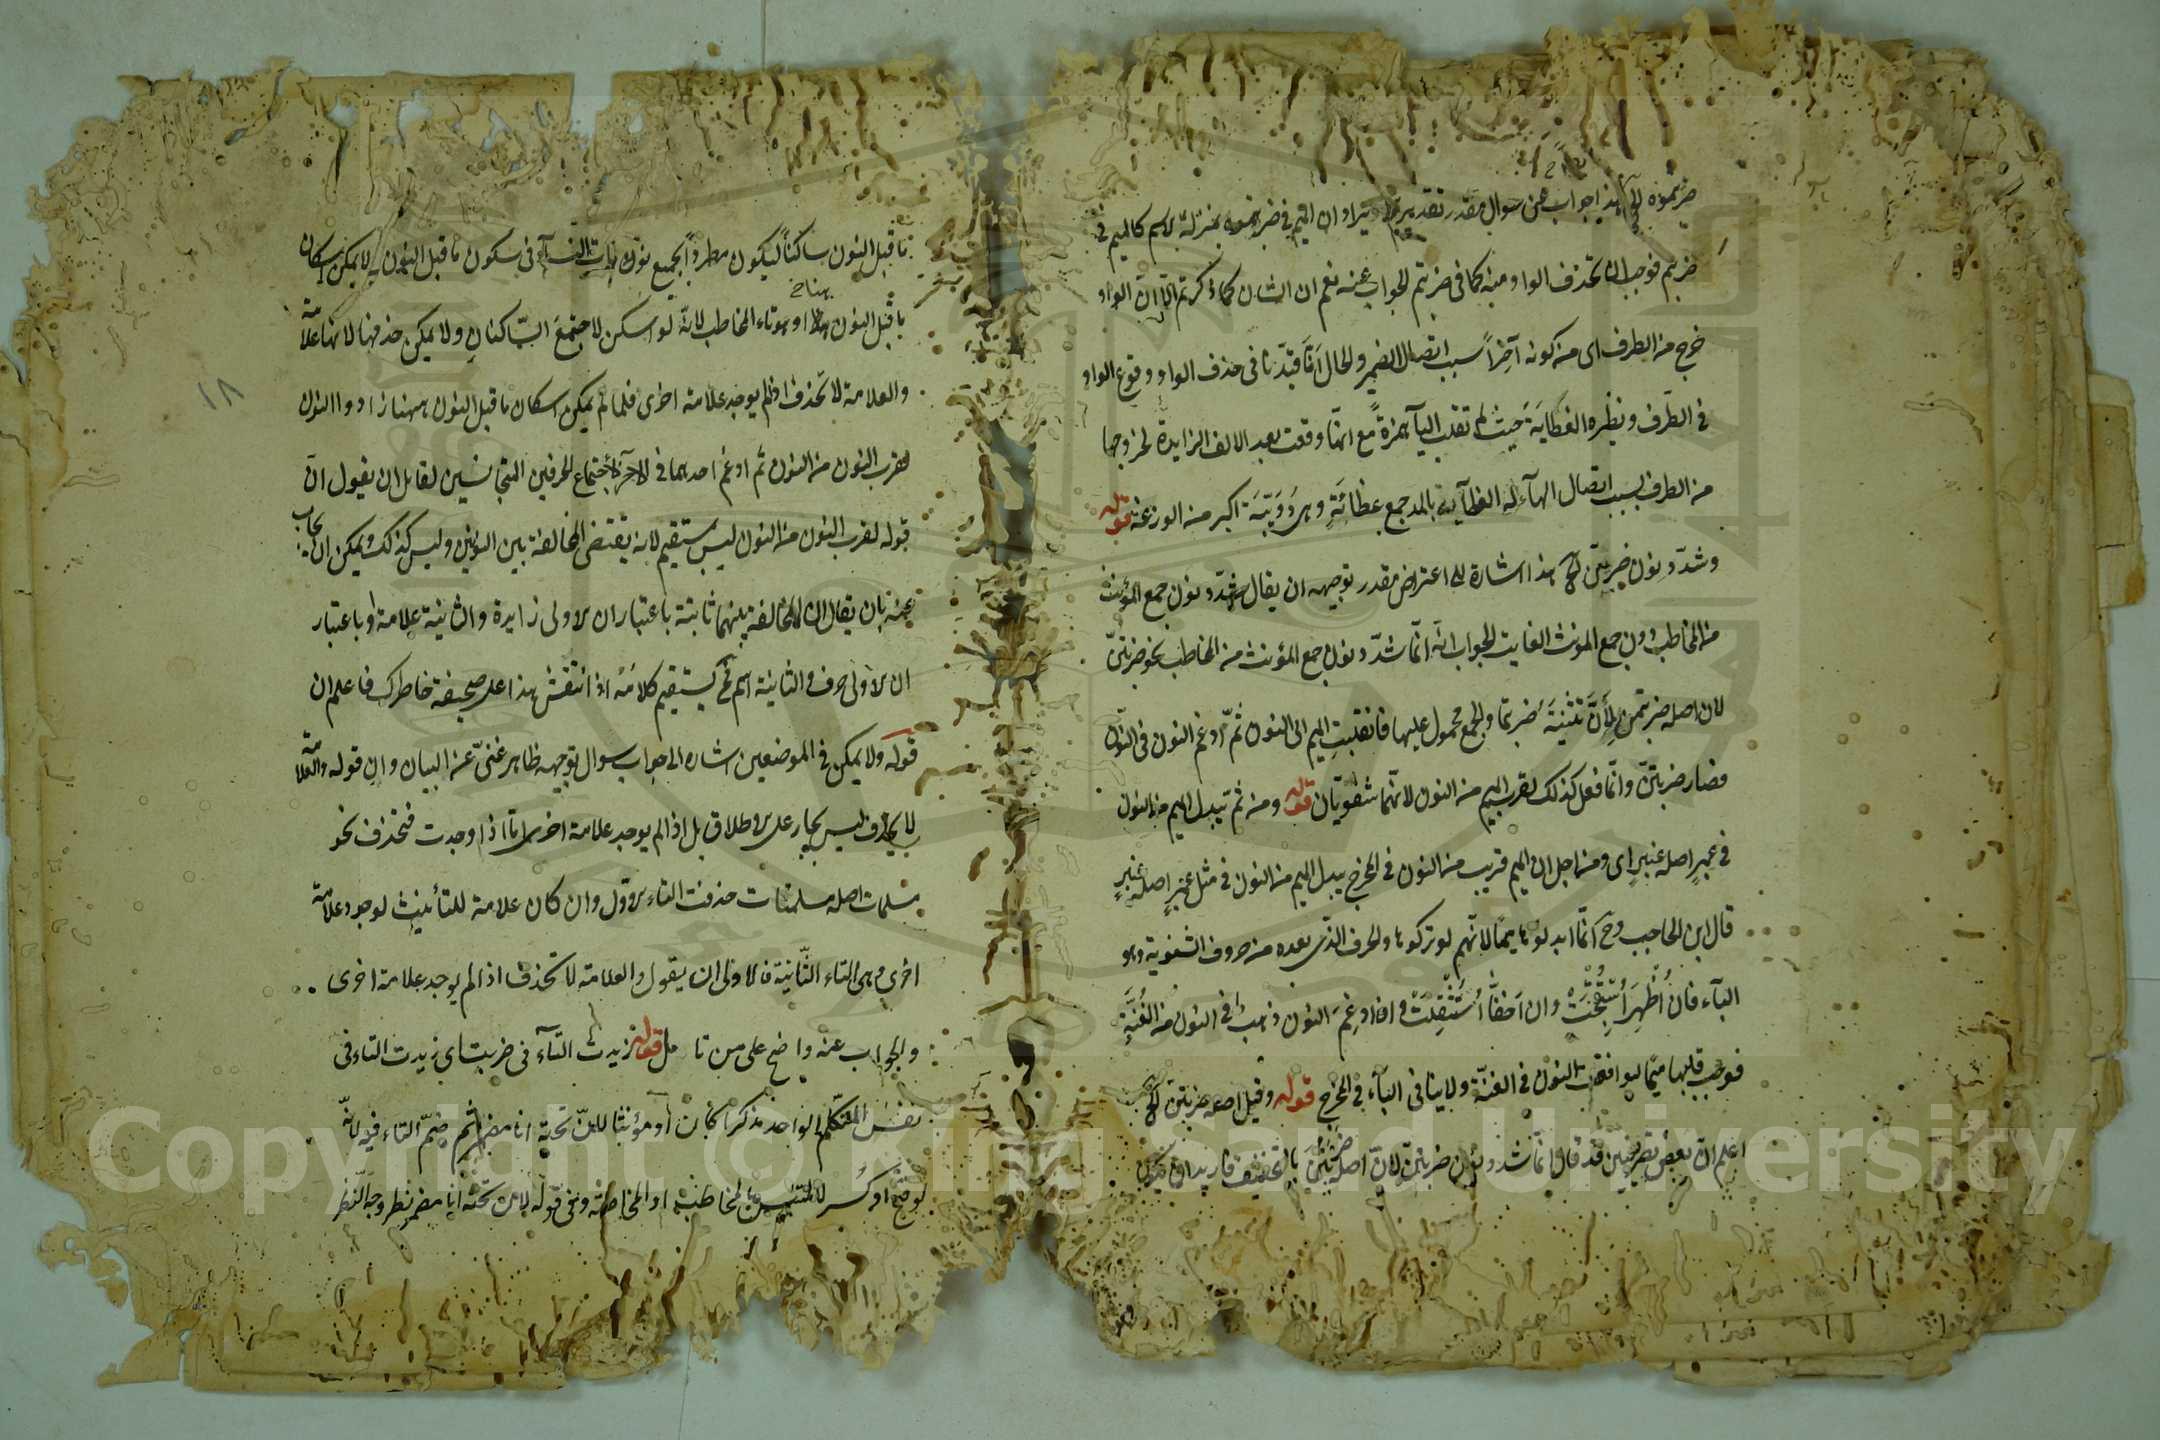 ضربتموه الخ هذا جواب عن سوال مقدر تقديره ان الميم في ضربتموه بمنزلة الاسم كالميم في
ضربتم فوجب ان تحذف الواو منه كما في ضربتم الجواب عنه نعم ان الشان كما ذكرتم الا ان الواو
خرج من الطرف اى من كونه آخراً بسبب اتصال الضمير والحال انا قيدنا في حذف الواو وقوع الواو
في الطرف ونظيره العظاية حيث لم تقلب اليآ همزةً مع انها وقعت بعد الالف الزايدة لخروجها
من الطرف بسبب اتصال الهآء له العظآية بالمد جمع عظائة وهى دويبة اكبر من الوزغة قوله
وشدد نون ضربتن الخ هذا اشارة الى اعتراض مقدر توجيهه ان يقال شدد نون جمع المؤنث
من المخاطب دون جمع المونث الغايب الجواب انه انما شدد نون جمع المؤنث من المخاطب نحو ضربتن
لان اصله ضربتمن لأن تثنية ضربتما والجمع محمول عليها فانقلبت الميم الى النون ثم ادغم النون في النون
فصار ضربتن وانما فعل كذلك لقرب الميم من النون لانهما شفويتان قوله ومن ثم تبدل الميم من النون
في عمبر اصله عنبر اى ومن اجل ان الميم قريب من النون في المخرج يبدل الميم من النون في مثل عمبر اصله عنبر
قال ابن الحاجب وح انما ابدلوها ميما لانهم لو تركوها والحرف الذى بعده من حروف الشفوية وهو
البآء فان أظهر استقبحت وان اخفا استثقلت و اذا ادغم النون ذهب في النون من الغنة
فوجب قلبها ميما ليوافقت النون في الغنة ولا ينافى البآء في المخرج قوله وقيل اصله ضربتن الخ
اعلم ان بعض تصريفيين قد قال انما شدد نون ضربتن لان اصله ضربتن بالتخفيف فاريد ان يكون
ما قبل النون ساكناً ليكون مطرداً بجميع نونات النسآء في سكون ما قبل النون ولا يمكن اسكان
هنا ح
ما قبل النون هذا وهو تاء المخاطب لانه لو اسكن لاجتمع الساكنان ولا يمكن حذفها لانها علامة
والعلامة لا تحذف اذ لم يوجد علامة اخرى فلما لم يمكن اسكان ما قبل النون ههنا زادوا النون
لقرب النون من النون ثم ادغم احدهما في الآخر لاجتماع الحرفين المتجانسين لقايل ان يقول ان
قوله لقرب النون من النون ليس بمستقيم لانه يقتضى المخالفة بين النونين وليس كذلك ويمكن ان يجاب
عنه بان يقال ان المخالفة بينهما ثابتة باعتبار ان الاولى زايدة والثانية علامة او باعتبار
ان الاولى حرف والثانية اسم فح يستقيم كلامه اذا انتقش هذا على صحيفة خاطرك فاعلم ان
قوله ولا يمكن في الموضعين اشاره الى جواب سوال توجيهه ظاهر غنى عن البيان وان قوله والعلامة
لا يحذف ليس بجار على الاطلاق بل اذا لم يوجد علامة اخرى اما اذا وجدت فتحذف نحو
مسلمات اصله مسلمتات حذفت التاء الاول وان كان علامة للتأنيث لوجود علامة
اخرى وهى التاء الثانية فالاولى ان يقول والعلامة لا تحذف اذا لم يوجد علامة اخرى
والجواب عنه واضح على من تامل قوله زيدت التآء في ضربت اى زيدت التاء في
نفس المتكلم الواحد مذكرا كان او مؤنثا لان تحته انا مضمر ثم ضم التاء فيه لانه
لو فتح او كسر لالتبس بالمخاطب او المخاطبة وفي قوله لان تحته انا مضمر نظر وجه النظر
١٨